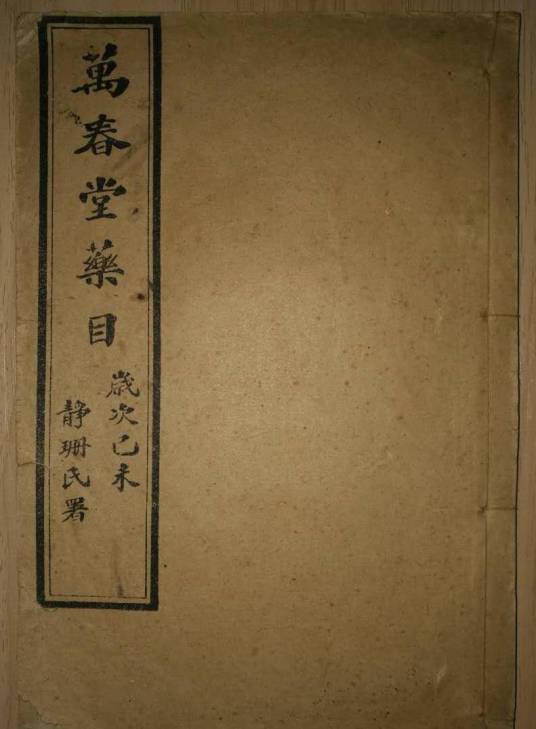 萬春堂藥目
歲次己未
靜珊氏署